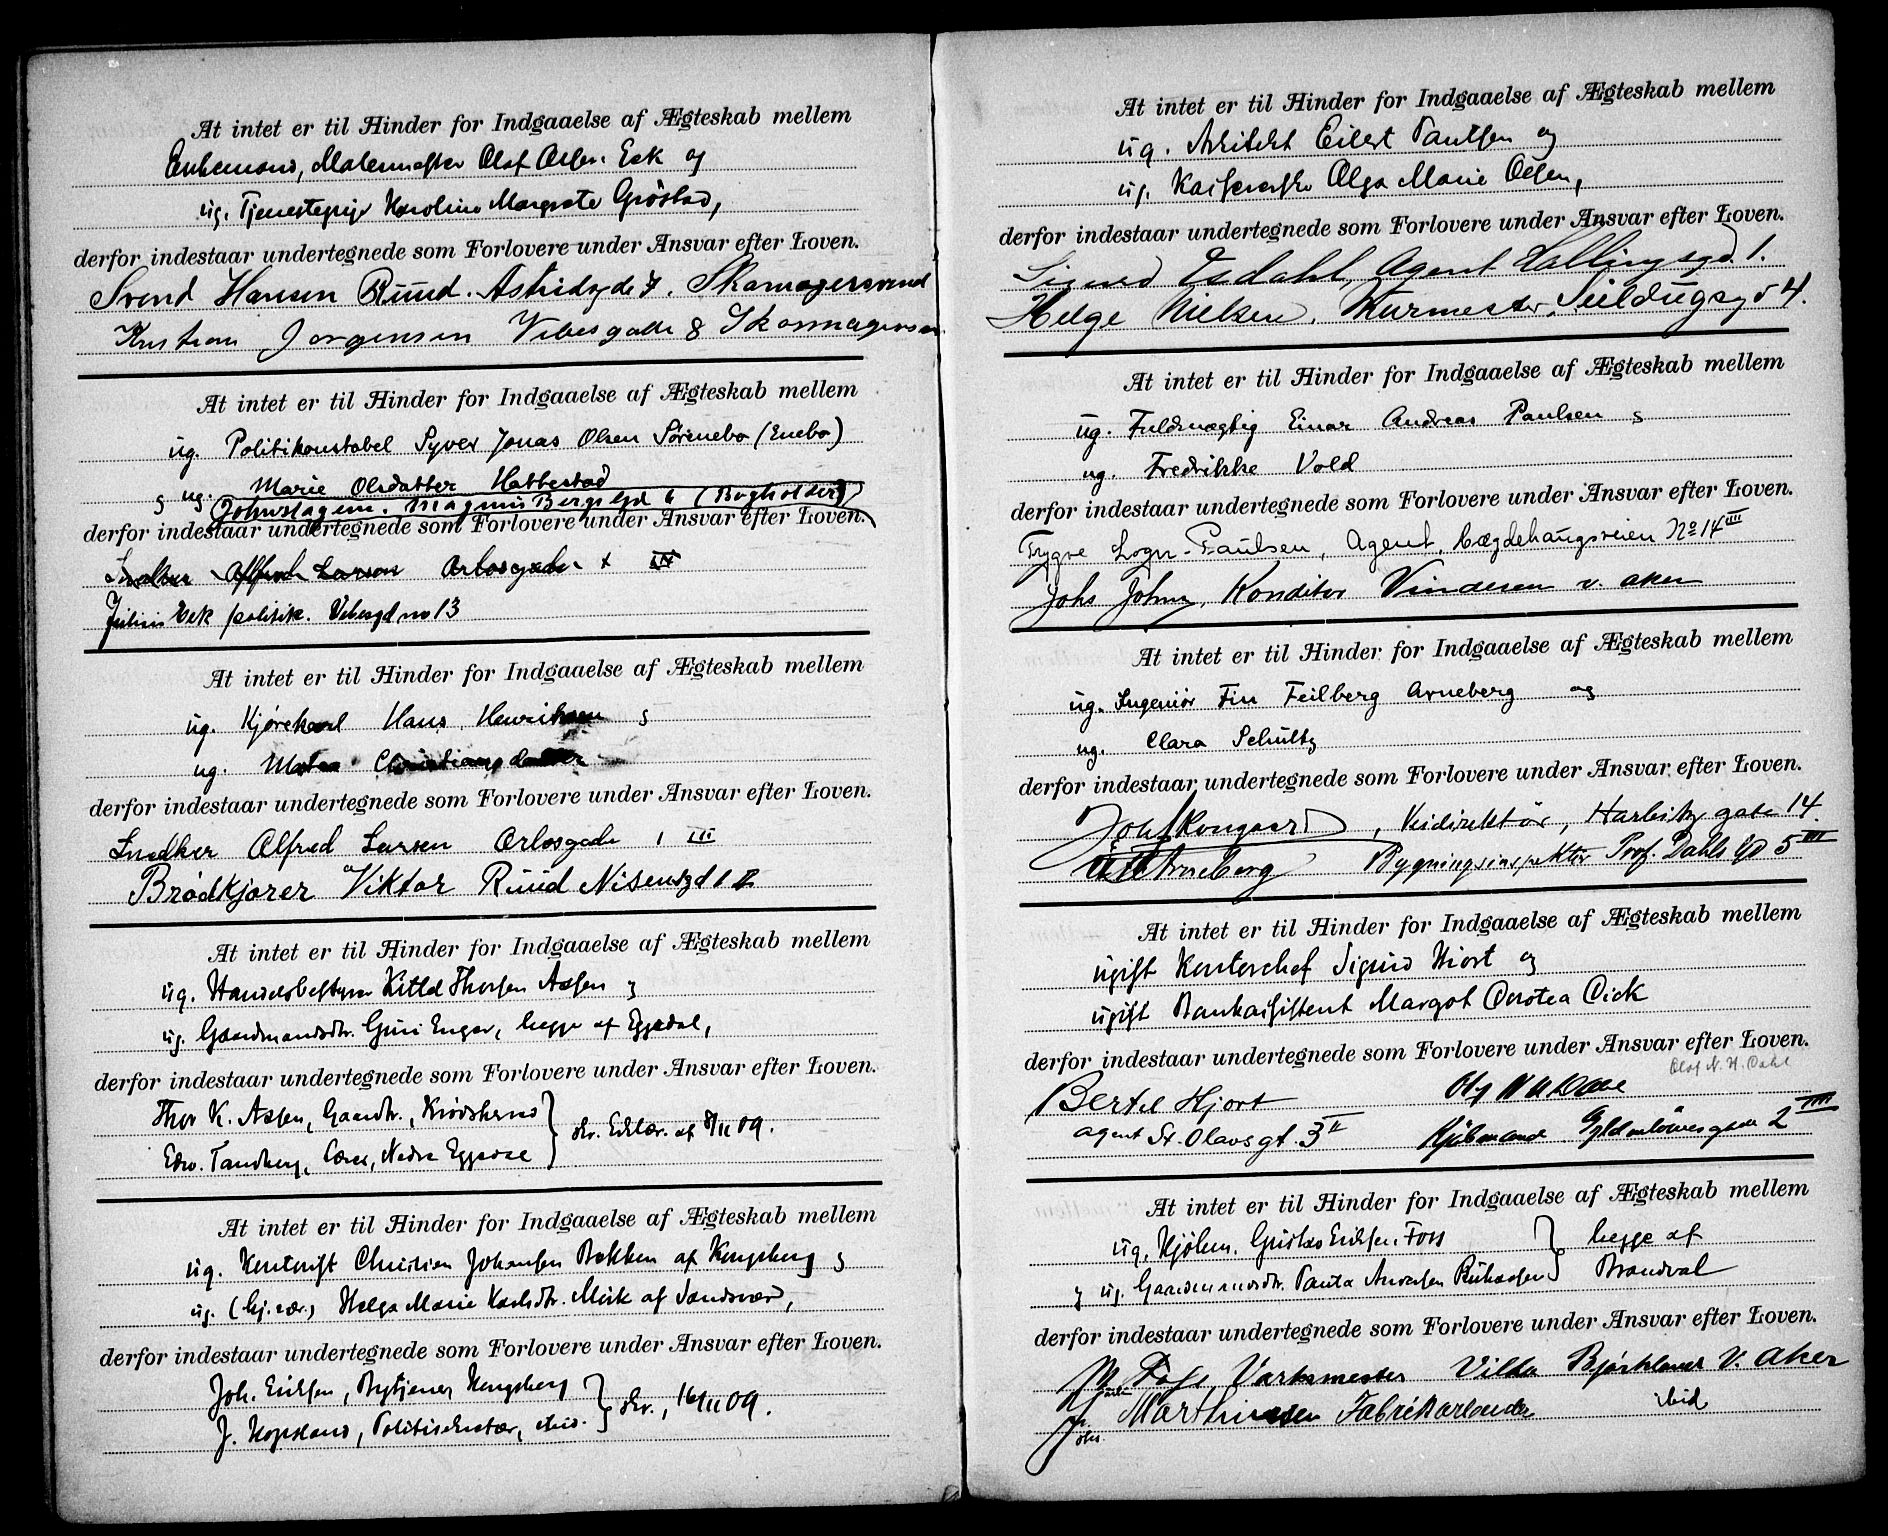 At intet er til Hinder for Indgaaelse af Ægteskab mellem
Enkemand, Malermester Olaf Olsen Eek og
ug. Tjenestepige Karoline Margrete Gröstad,
derfor indestaar undertegnede som Forlovere under Ansvar efter Loven.
Svend Hansen Ruud. Astridsgde 7. Skomagersvend
Kristian Jorgensen Vibesgade 8 Skomagersv
At intet er til Hinder for Indgaaelse af Ægteskab mellem
ug. Politikonstabel Syver Jonas Olsen Sörenebo (Enebo)
g ug. Marie Olsdatter Habbestad
Magnus Bergs gd 6 (Bogholder)
derfor indestaar undertegnede som Forlovere under Ansvar efter Loven.
Snedker Alfred Larsen Orlosgade 1 III
Julius Eek politik. Vibesgd no 13
At intet er til Hinder for Indgaaelse af Ægteskab mellem
ug. Kjørekarl Hans Henriksen g
ug. Matea Christiansdatter
derfor indestaar undertegnede som Forlovere under Ansvar efter Loven.
Snedker Alfred Larsen Orlosgade 1 III
Brødkjører Viktor Ruud Nisensgd 1 II
At intet er til Hinder for Indgaaelse af Ægteskab mellem
ug. Handelsbestyrer Kittel Thorsen Aasen g
ug. Gaardmandsdtr. Guri Enger, begge af Eggedal,
derfor indestaar undertegnede som Forlovere under Ansvar efter Loven.
Thor K. Aasen, Gaardbr., Krödsherred
Edv. Tandberg, Lærer, Nedre Eggedal } skr. Erklær. af 8/11 09.
At intet er til Hinder for Indgaaelse af Ægteskab mellem
ug. Kontorist Christian Johansen Bakken af Kongsberg g
ug. (hj.vær.) Helga Marie Karlsdtr. Moik af Sandsvær,
derfor indestaar undertegnede som Forlovere under Ansvar efter Loven.
Joh. Eriksen, Bytjener, Kongsberg
J. Hopsland, Politisekretær, ibid. } skr., 16/11 09.
At intet er til Hinder for Indgaaelse af Ægteskab mellem
ug. Arkitekt Eilert Paulsen og
ug. Kasserske Olga Marie Olsen,
derfor indestaar undertegnede som Forlovere under Ansvar efter Loven.
Sigurd Esdahl, Agent Collingsgd 1.
Helge Nielsen, Murmester, Seildugsgd 4.
At intet er til Hinder for Indgaaelse af Ægteskab mellem
ug. Fuldmægtig Einar Andreas Paulsen g
ug. Fredrikke Vold
derfor indestaar undertegnede som Forlovere under Ansvar efter Loven.
Trygve Logn-Paulsen, Agent, Bægdehaugsveien No 14 IIII
Johs Johns, Konditor Vinderen v. Aker
At intet er til Hinder for Indgaaelse af Ægteskab mellem
ug. Ingeniör Fin Feilberg Arneberg og
ug. Clara Schultz
derfor indestaar undertegnede som Forlovere under Ansvar efter Loven.
Joh Skougaard, Veidirektör, Harbitz gate 14.
Arneberg Bygningsinspektör Prof. Dahls gd 5 III
At intet er til Hinder for Indgaaelse af Ægteskab mellem
ugift Kontorchef Sigurd Hiort og
ugift Bankassistent Margot Dorotea Dick
derfor indestaar undertegnede som Forlovere under Ansvar efter Loven.
Olaf N. H. Dahl
Bertel Hjort Olaf N H Dahl
agent St. Olavsgt. 3 II Kjöbmand Gyldenlövesgade 2 IIII
At intet er til Hinder for Indgaaelse af Ægteskab mellem
ug. Kjölem. Gustav Eriksen Foss
g ug. Gaardmandsdtr. Paula Andersen Rukaasen } begge af Brandval
derfor indestaar undertegnede som Forlovere under Ansvar efter Loven.
Foss, Værksmester Villa Björklund V. Aker
Johs. Marthinsen Fabrikarbeider ibid